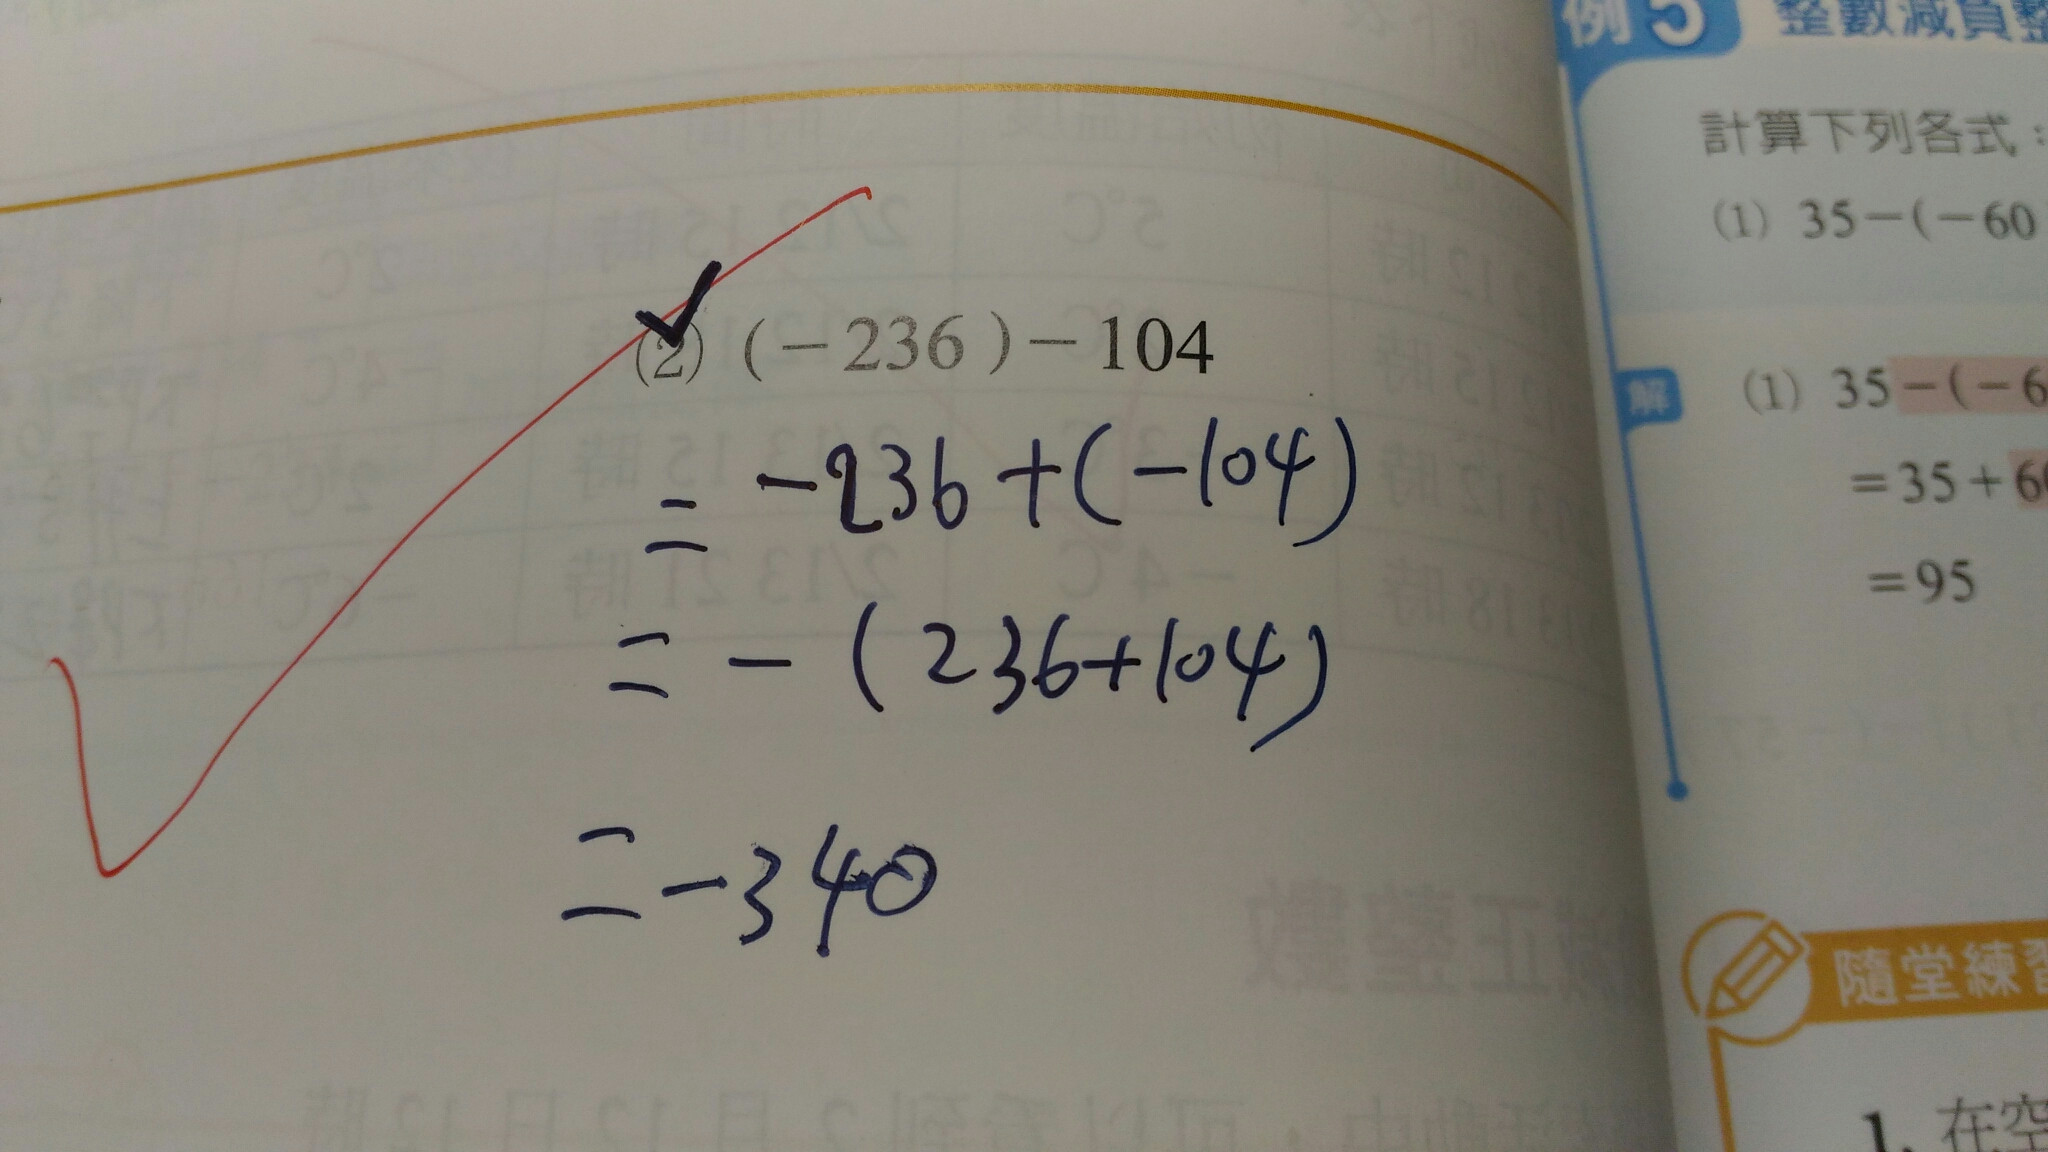 (2) (-236)-104
= -236+(-104)
= -(236+104)
= -340
例5 整數減負整
計算下列各式：
(1) 35-(-60
解 (1) 35-(-6
=35+60
=95
隨堂練習
1. 在空